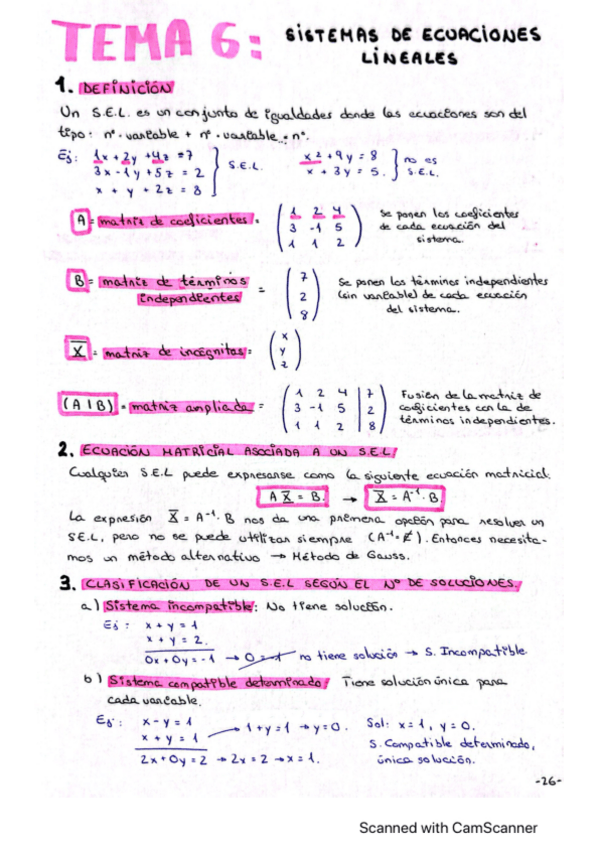 TEMA 6: SISTEMAS DE ECUACIONES
LINEALES
1. DEFINICIÓN
Un S.E.L. es un conjunto de igualdades donde las ecuaciones son del
tipo: nº · variable + nº · variable = nº.
Ej: 1x + 2y + 4z = 7
3x - 1y + 5z = 2
x + y + 2z = 8
S.E.L.
x² + 9y = 8
x + 3y = 5.
no es
S.E.L.
A = matriz de coeficientes =
1 2 4
3 -1 5
1 1 2
Se ponen los coeficientes
de cada ecuación del
sistema.
B = matriz de términos
independientes =
7
2
8
Se ponen los términos independientes
(sin variable) de cada ecuación
del sistema.
X = matriz de incógnitas =
x
y
z
(A | B) = matriz ampliada =
1 2 4 | 7
3 -1 5 | 2
1 1 2 | 8
Fusión de la matriz de
coeficientes con la de
términos independientes.
2. ECUACIÓN MATRICIAL ASOCIADA A UN S.E.L
Cualquier S.E.L puede expresarse como la siguiente ecuación matricial.
A X = B. → X = A⁻¹ · B.
La expresión X = A⁻¹ · B nos da una primera opción para resolver un
S.E.L, pero no se puede utilizar siempre (A⁻¹ = ∄). Entonces necesita-
mos un método alternativo → Método de Gauss.
3. CLASIFICACIÓN DE UN S.E.L SEGÚN EL Nº DE SOLUCIONES.
a) Sistema incompatible: No tiene solución.
Ej: x + y = 1
x + y = 2.
0x + 0y = -1 → 0 = -1 no tiene solución → S. Incompatible.
b) Sistema compatible determinado: Tiene solución única para
cada variable.
Ej: x - y = 1
x + y = 1.
→ 1 + y = 1 → y = 0.
Sol: x = 1, y = 0.
S. Compatible determinado,
única solución.
2x + 0y = 2 → 2x = 2 → x = 1.
-26-
Scanned with CamScanner